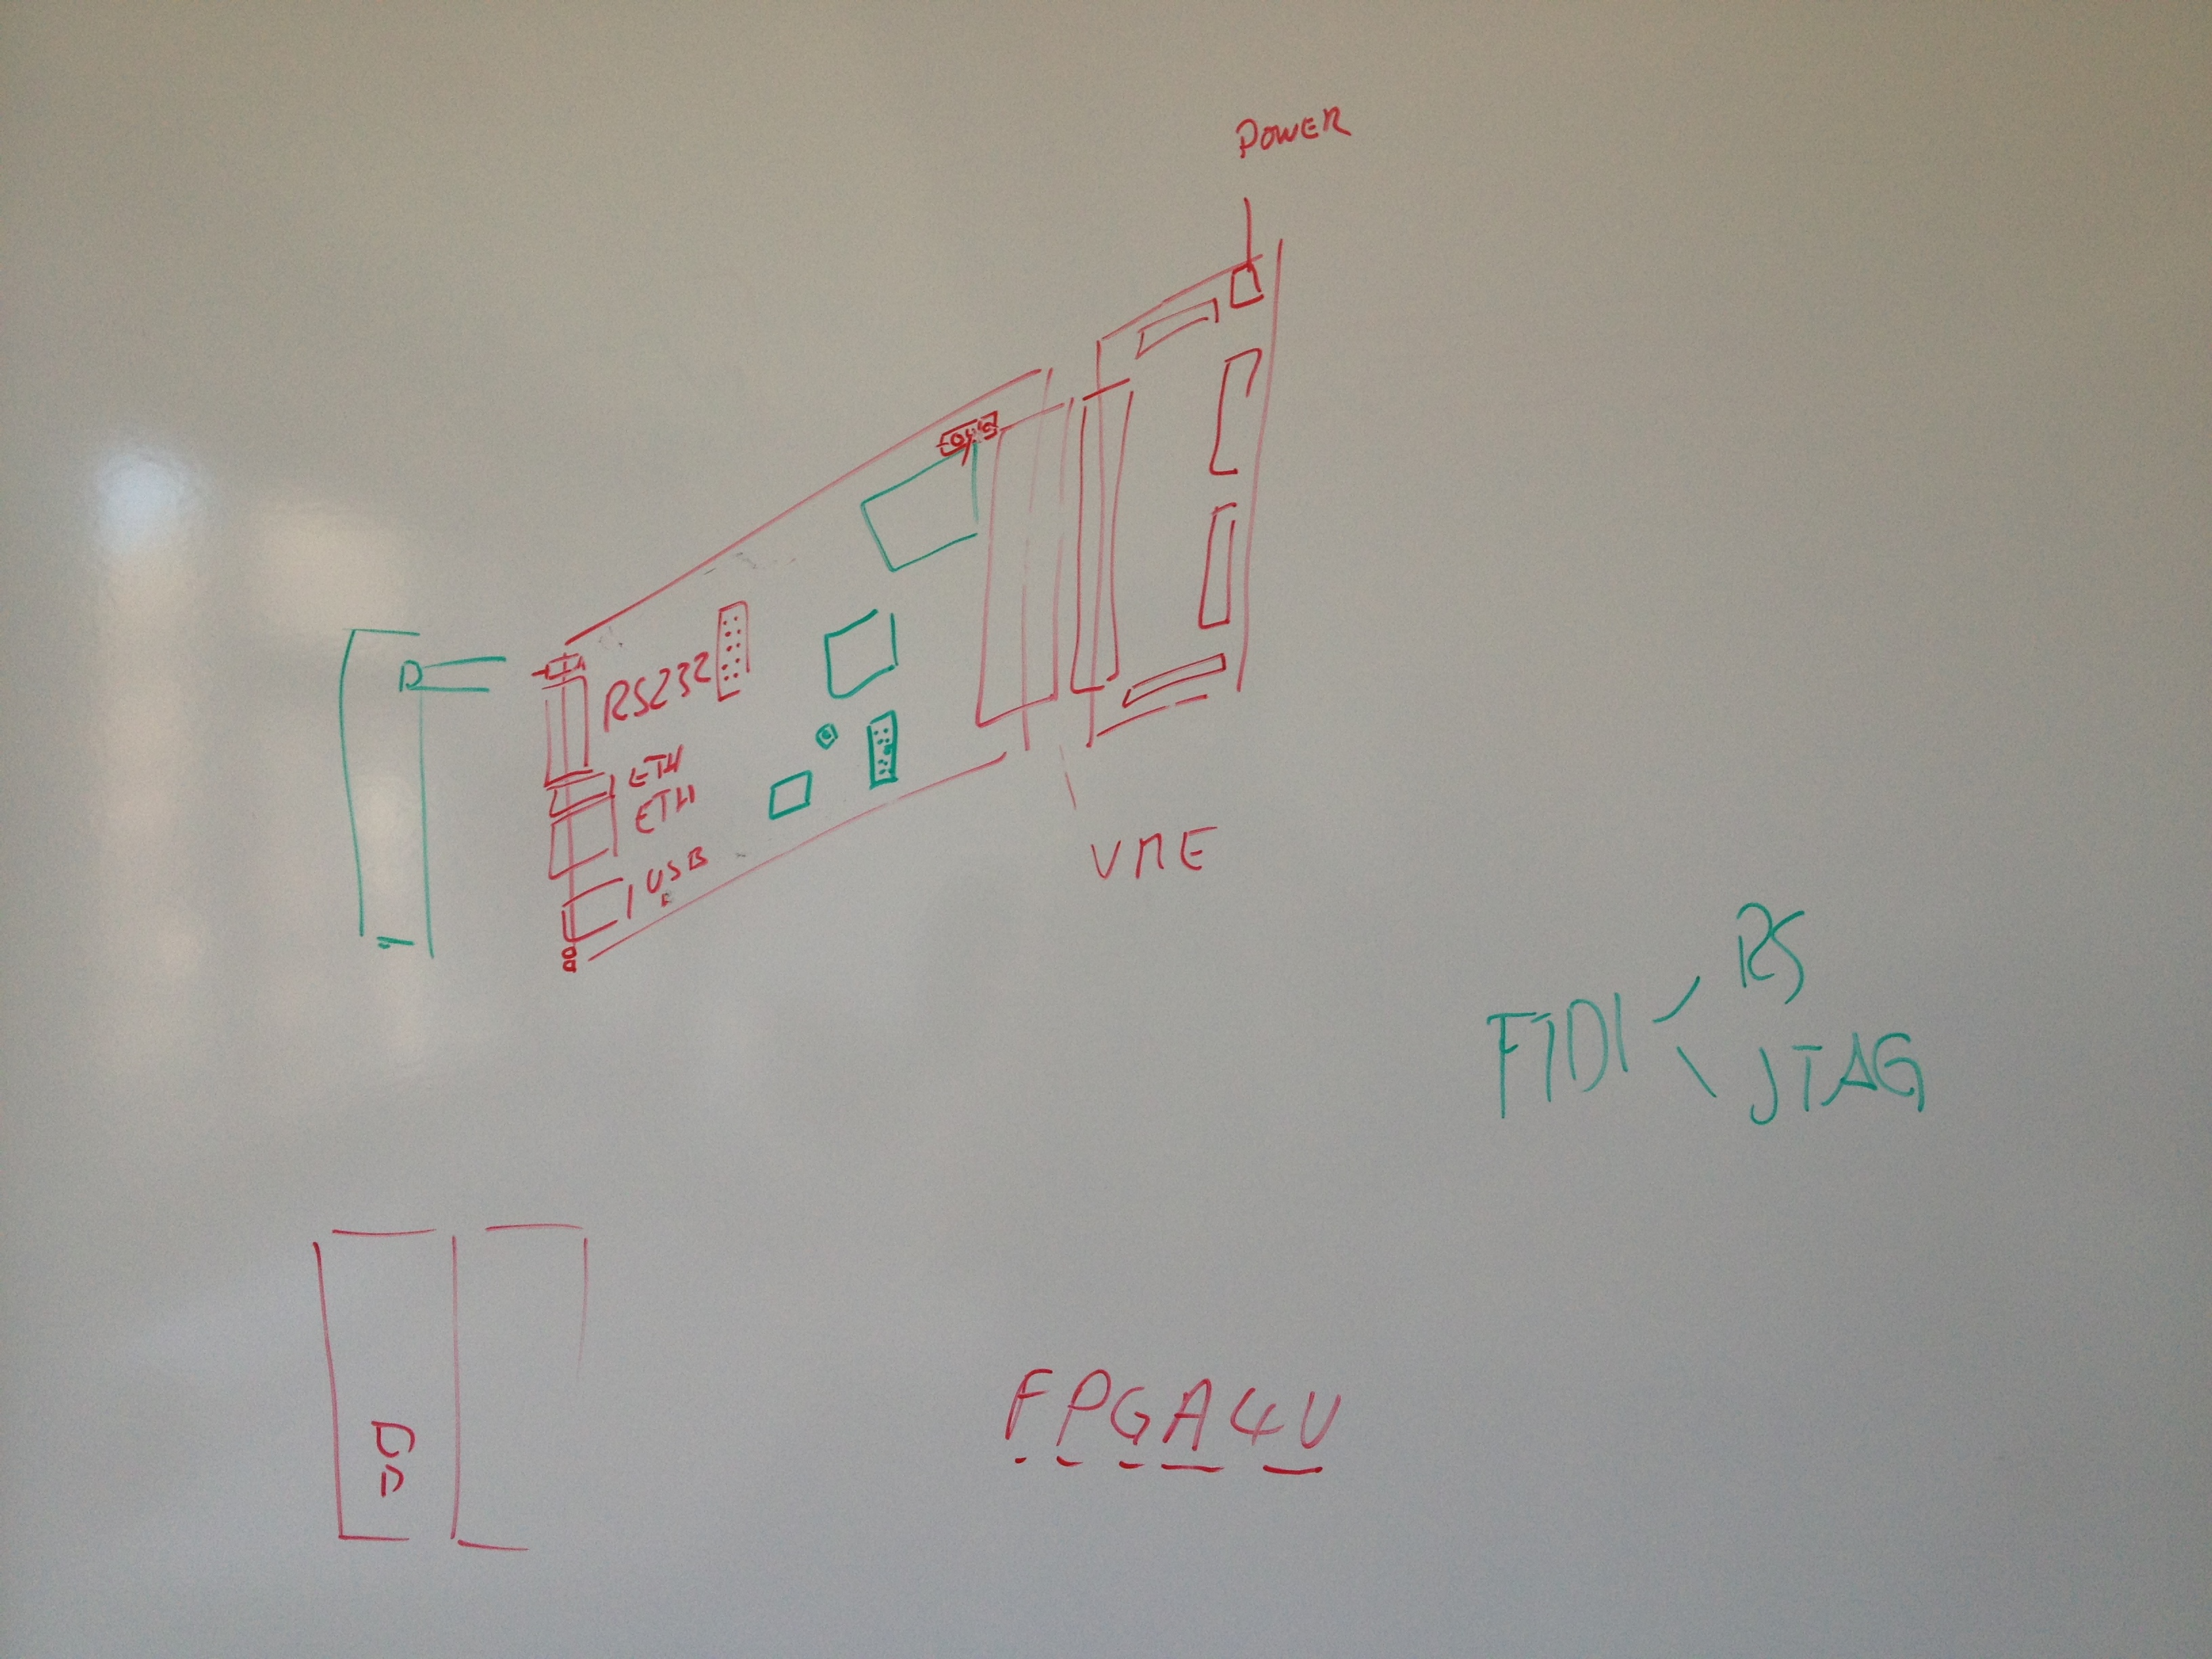 POWER
RS232
ETH
ETH
USB
VME
RS
FTDI
JTAG
FPGA4U